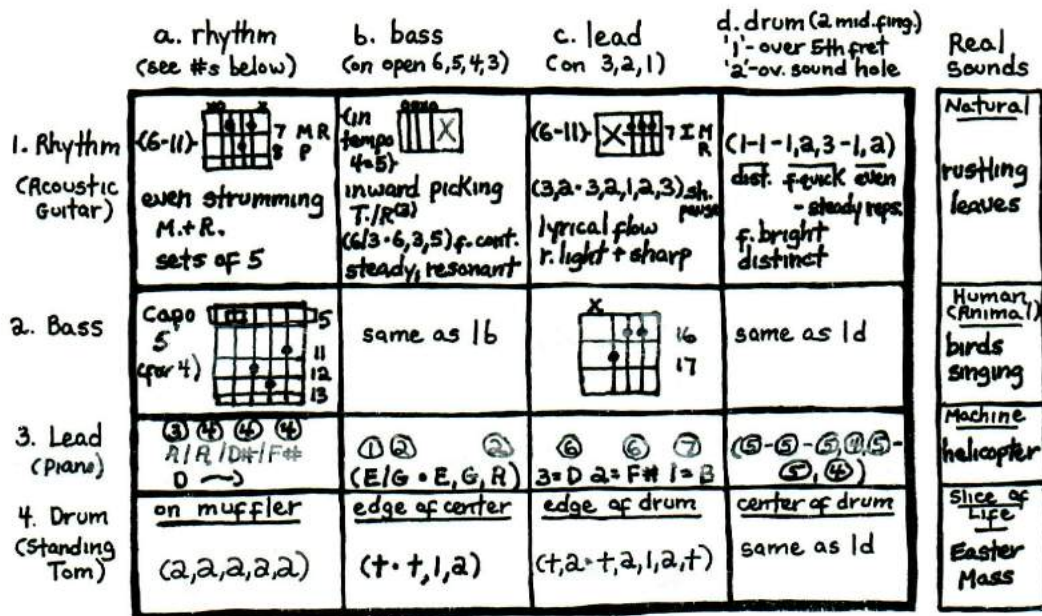 a. rhythm
(see #s below)
b. bass
(on open 6,5,4,3)
c. lead
(on 3,2,1)
d. drum (2 mid. fing.)
'1'- over 5th fret
'2'-ov. sound hole
Real
Sounds
1. Rhythm
(Acoustic
Guitar)
(6-11)-
xo x
7 M R
8 P
even strumming
M.+R.
sets of 5
(in
tempo
4=5)
X
inward picking
T./R(3)
(6/3 • 6,3,5) f. cont.
steady, resonant
(6-11)-
X
7 I M
R
(3,2 • 3,2,1,2,3) sh.
pause
lyrical flow
r. light + sharp
(1-1-1,2,3-1,2)
dist. f-quick even
- steady reps.
f. bright
distinct
Natural
rustling
leaves
2. Bass
Capo
5
(for 4)
5
11
12
13
same as 1b
X
16
17
same as 1d
Human
(Animal)
birds
singing
3. Lead
(Piano)
3 4 4 4
A/A/D#/F#
D →
1 2 2
(E/G • E, G, A)
6 6 7
3=D 2=F# 1=B
(5-5-5,4,5-
5,4)
Machine
helicopter
4. Drum
(Standing
Tom)
on muffler
(2,2,2,2,2)
edge of center
(t • t,1,2)
edge of drum
(t,2 • t,2,1,2,t)
center of drum
same as 1d
Slice of
Life
Easter
Mass